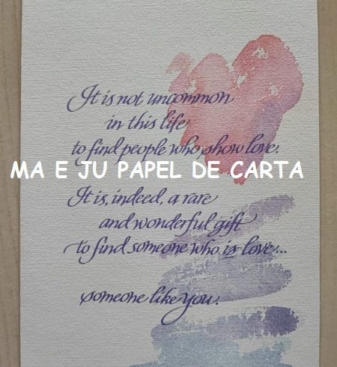 It is not uncommon
in this life
to find people who show love.
MA E JU PAPEL DE CARTA
It is, indeed, a rare
and wonderful gift
to find someone who is love...
someone like you.